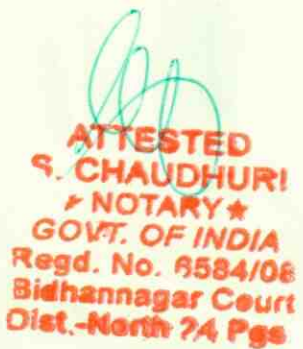 ATTESTED
S. CHAUDHURI
★ NOTARY ★
GOVT. OF INDIA
Regd. No. 6584/08
Bidhannagar Court
Dist.-North 24 Pgs